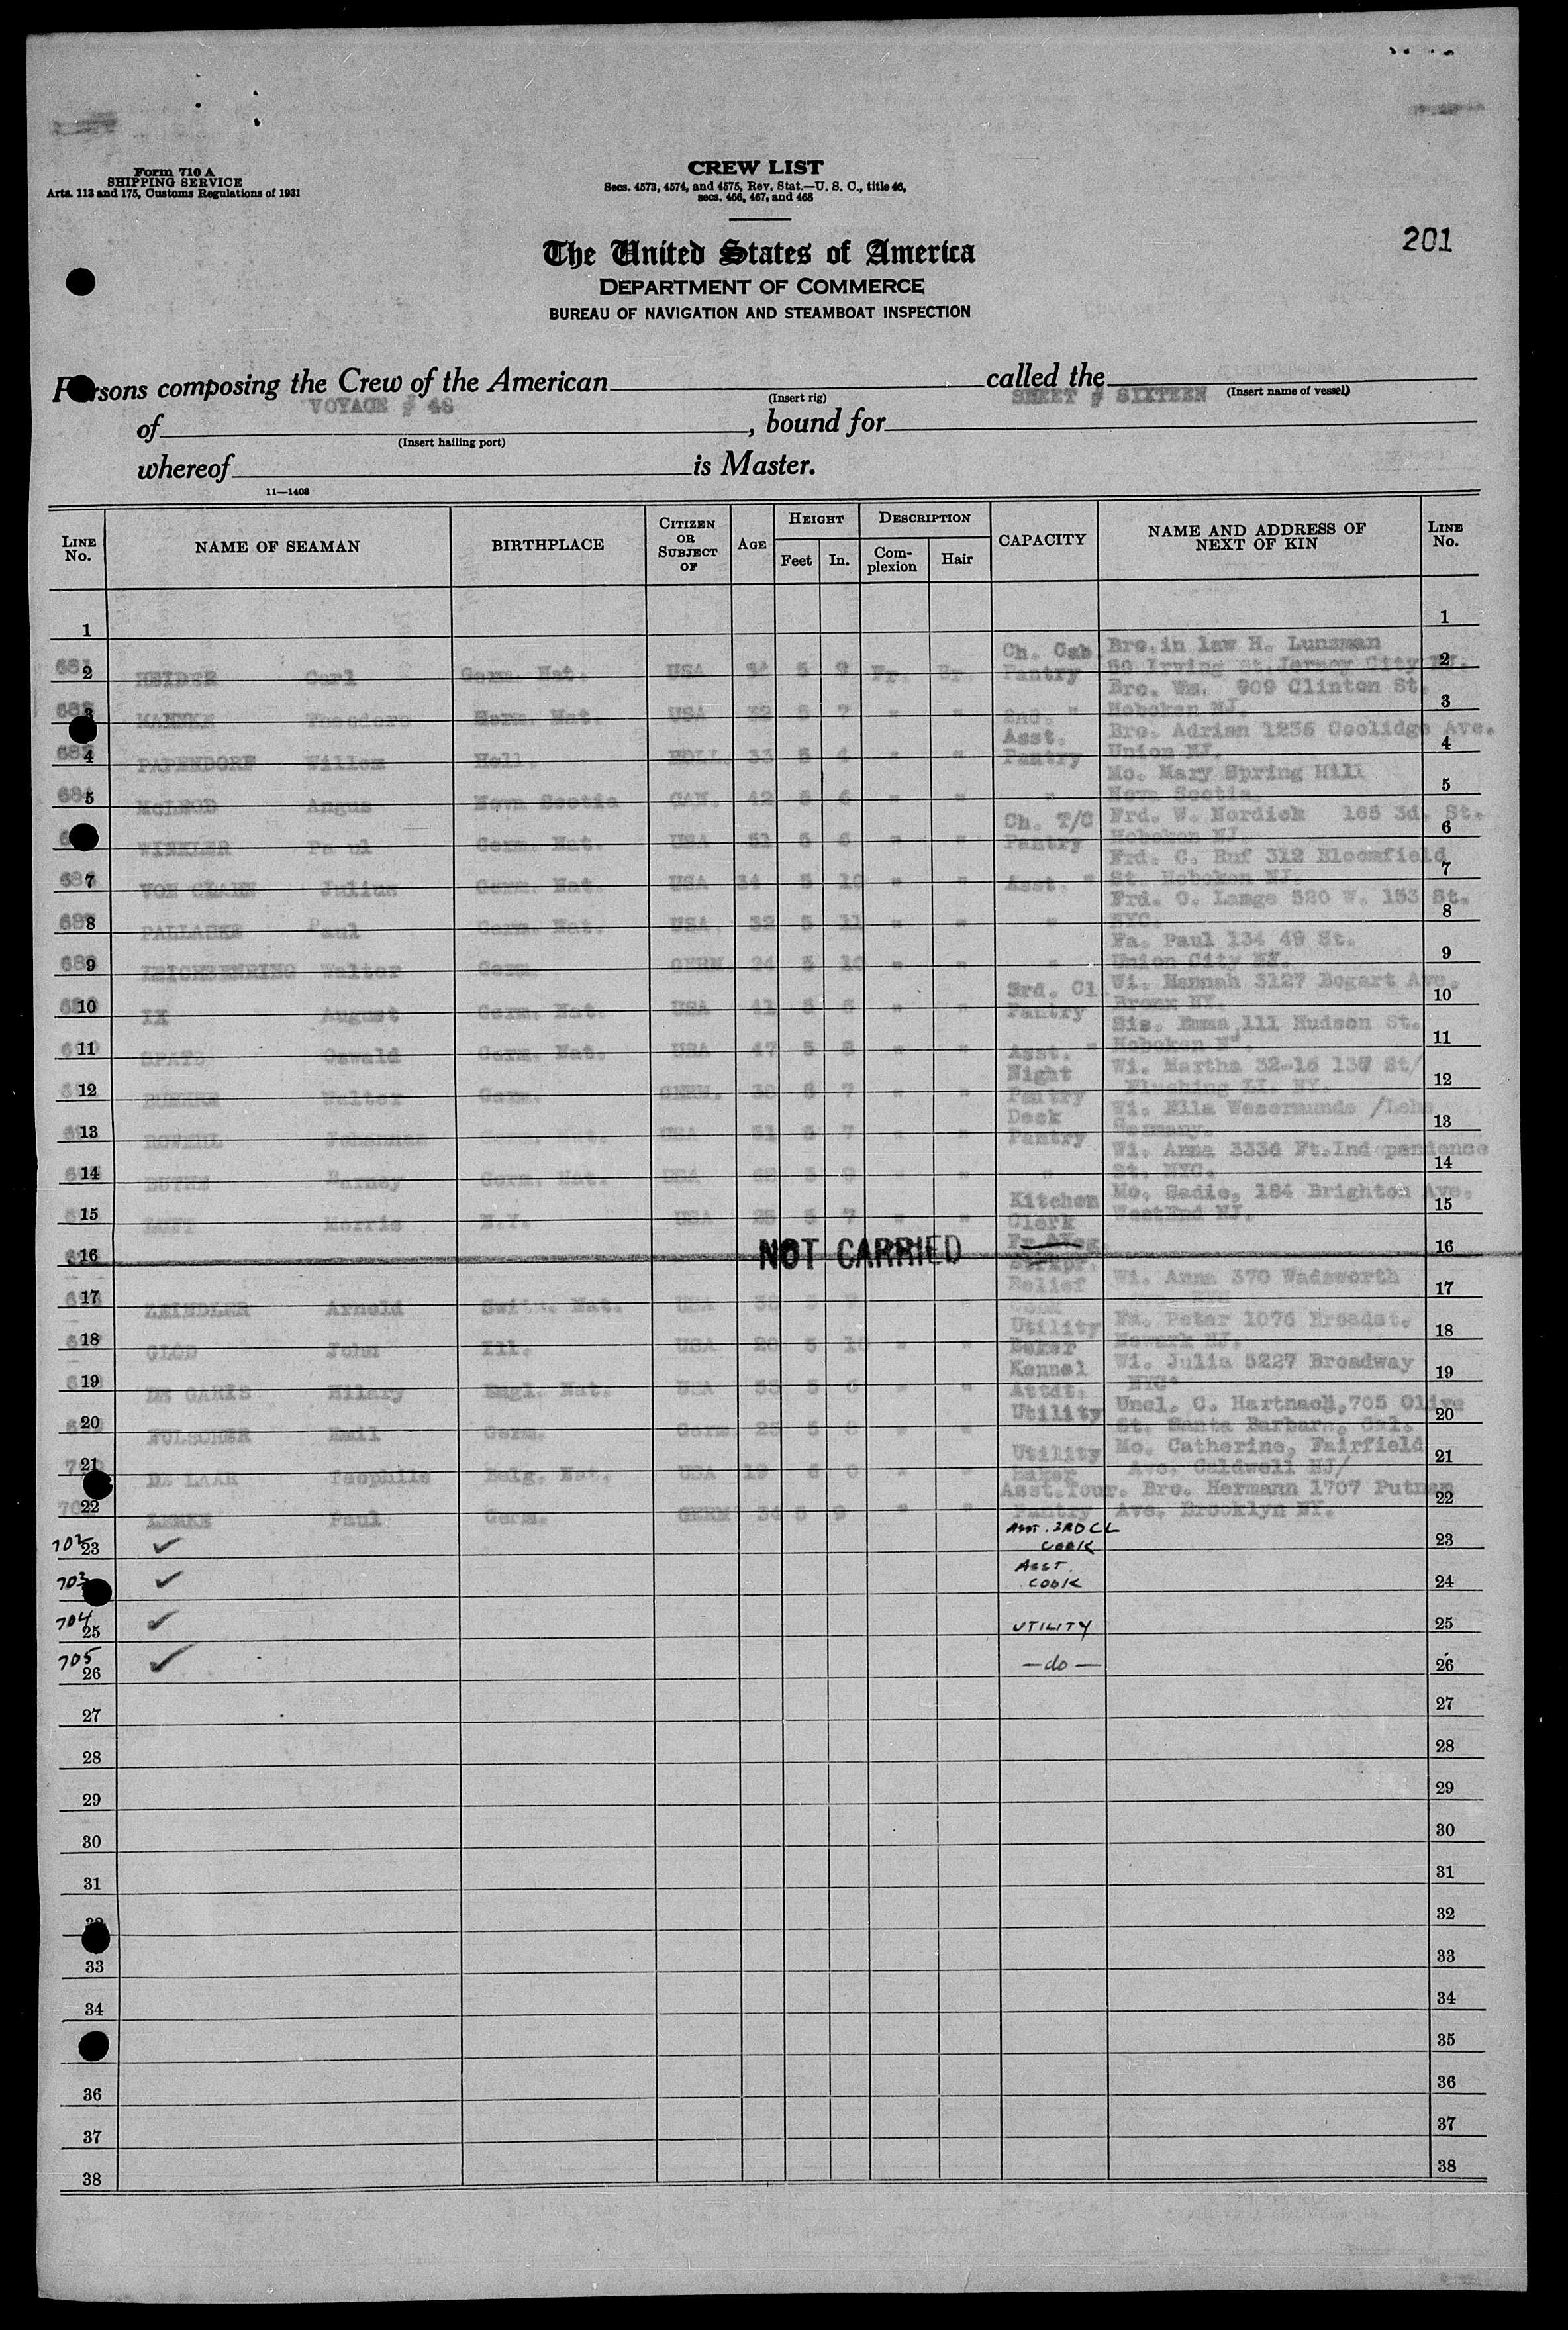 Form 710 A
SHIPPING SERVICE
Arts. 113 and 175, Customs Regulations of 1931
CREW LIST
Secs. 4573, 4574, and 4575, Rev. Stat.—U. S. C., title 46,
secs. 466, 467, and 468
201
The United States of America
DEPARTMENT OF COMMERCE
BUREAU OF NAVIGATION AND STEAMBOAT INSPECTION
Persons composing the Crew of the American called the
(Insert rig) SHEET # SIXTEEN (Insert name of vessel)
VOYAGE # 48
of , bound for
(Insert hailing port)
whereof is Master.
11—1408
LINE No. NAME OF SEAMAN BIRTHPLACE CITIZEN OR SUBJECT OF AGE HEIGHT Feet In. DESCRIPTION Complexion Hair CAPACITY NAME AND ADDRESS OF NEXT OF KIN LINE No.
1 1
Ch. Cab. Bro.in law H. Lunzman
681 2 HEIDER Carl Germ. Nat. USA 34 5 9 Fr. Br. Pantry 50 Irving St.Jersey City NJ. 2
Bro. Wm. 909 Clinton St.
3 Theodore Germ. Nat. USA 32 5 7 " " 2nd. " Hoboken NJ. 3
Asst. Bro. Adrian 1236 Coolidge Ave.
683 4 PAPENDORF Willem Holl. HOLL. 33 5 4 " " Pantry Union NJ. 4
Mo. Mary Spring Hill
684 5 McLEOD Angus Nova Scotia CAN. 42 5 6 " " " Nova Scotia. 5
Ch. T/C Frd. W. Nordick 165 3d. St.
WINKLER Paul Germ. Nat. USA 51 5 6 " " Pantry Hoboken NJ. 6
Frd. C. Ruf 312 Bloomfield
686 7 VON GLAHN Julius Germ. Nat. USA 34 5 10 " " Asst. " St. Hoboken NJ. 7
Frd. O. Lange 520 W. 153 St.
687 8 PALLASKE Paul Germ. Nat. USA. 32 5 11 " " " NYC. 8
Fa. Paul 134 49 St.
688 9 LEICHSENRING Walter Germ. GERM. 24 5 10 " " " Union City NJ. 9
3rd. Cl. Wi. Hannah 3127 Bogart Ave.
10 IX August Germ. Nat. USA 41 5 6 " " Pantry Bronx NY. 10
Sis. Emma,111 Hudson St.
690 11 SPATE Oswald Germ. Nat. USA 47 5 8 " " Asst. " Hoboken 11
Night Wi. Martha 32-15 137 St/
12 Walter Germ. GERM. 30 5 7 " " Pantry Flushing LI. NY. 12
Deck Wi. Ella Wesermunde /Lehe
13 ROWEHL Johannes Germ. Nat. USA 51 5 7 " " Pantry Germany. 13
Wi. Anna 3336 Ft.Independence
14 Barney Germ. Nat. USA 62 5 9 " " " St. NYC. 14
Kitchen Mo. Sadie, 184 Brighton Ave.
15 LUFT Morris N.Y. USA 25 5 7 " " Clerk WestEnd NJ. 15
16 NOT CARRIED 16
Relief Wi. Anna 370 Wadsworth
17 ZEINDLER Arnold Swits. Nat. USA 5 Cook Ave. NYC 17
Utility Fa. Peter 1076 Broadst.
18 GLOD John Ill. USA 20 5 10 " " Baker Newark NJ. 18
Kennel Wi. Julia 5227 Broadway
19 DE GARIS Hilary Engl. Nat. USA 53 5 6 " " Attdt. NYC. 19
Utility Uncl. C. Hartnack,705 Olive
20 HULSCHER Emil Germ. Germ. 25 5 8 " " St. Santa Barbara, Cal. 20
Utility Mo. Catherine, Fairfield
21 DE LAAR Teophile Belg. Nat. USA 19 6 0 " " Baker Ave. Caldwell NJ/ 21
Asst.Tour. Bro. Hermann 1707 Putnam
22 LEMKE Paul Germ. GERM 34 5 9 " " Pantry Ave. Brooklyn NY. 22
702 23 ✓ ASST. 3RD CL COOK 23
703 ✓ ASST. COOK 24
704 25 ✓ UTILITY 25
705 26 ✓ —do— 26
27 27
28 28
29 29
30 30
31 31
32 32
33 33
34 34
35
36 36
37 37
38 38